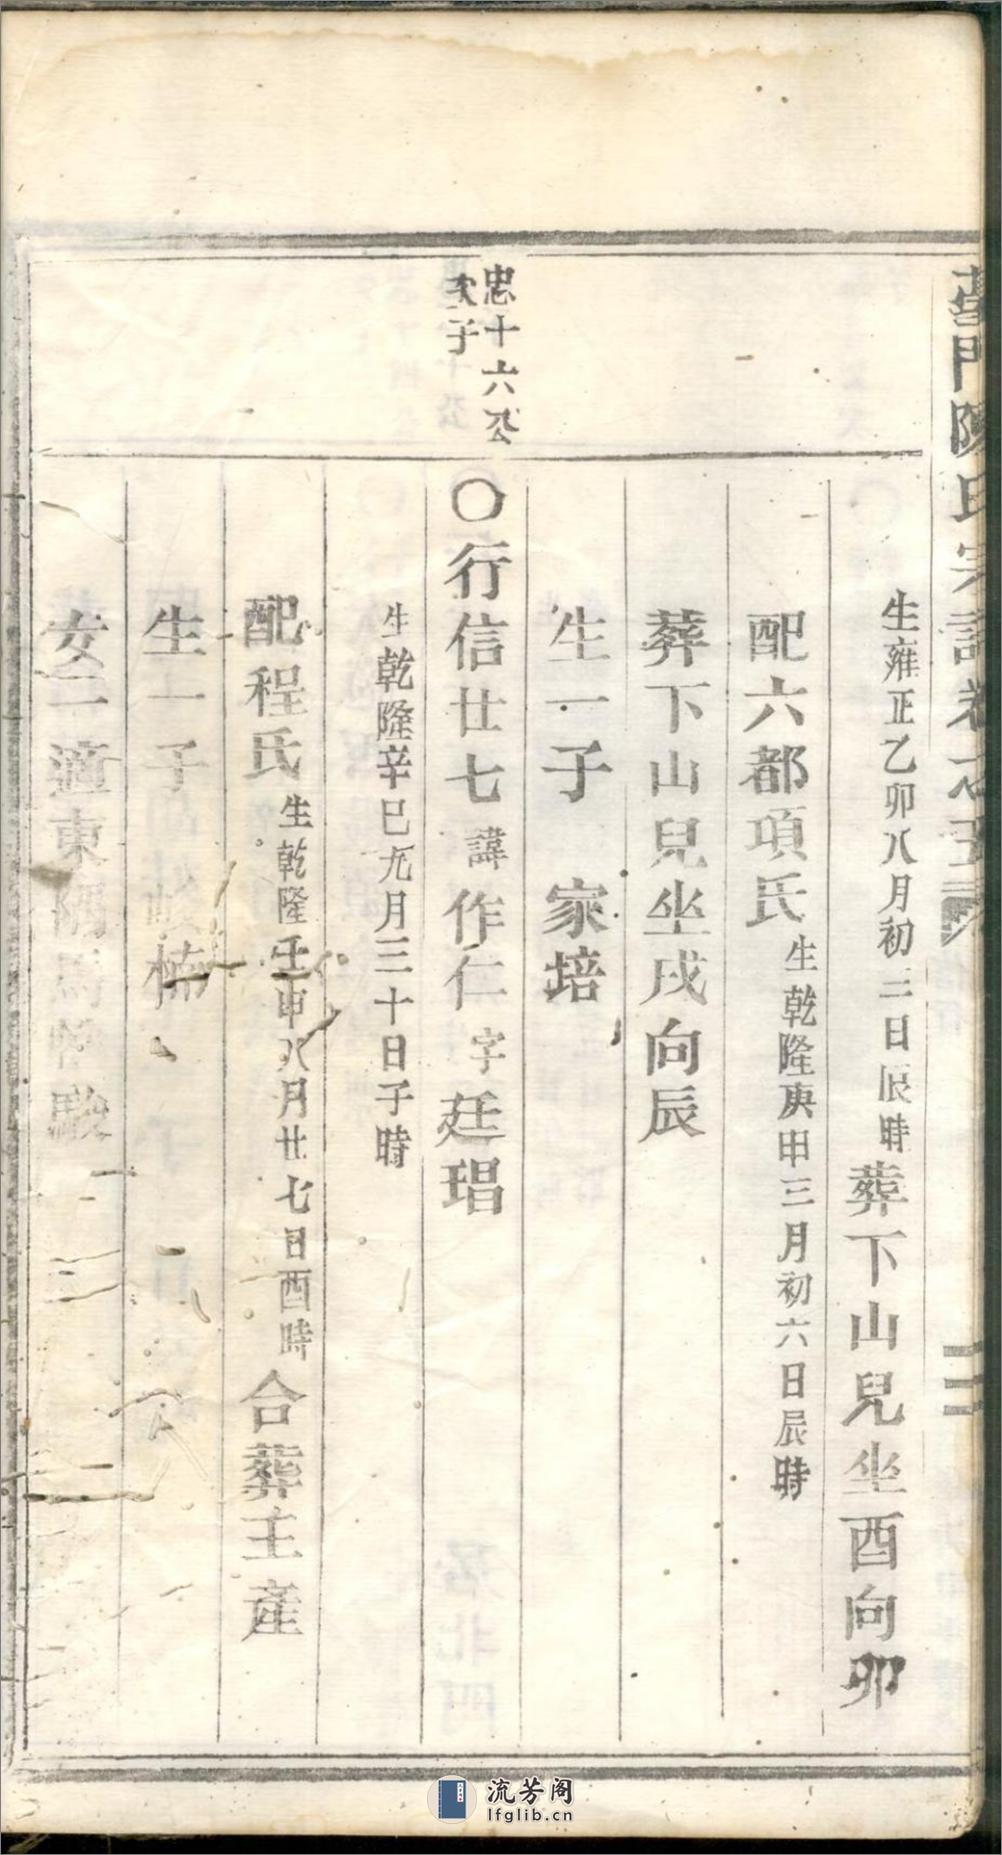 門陳氏宗譜卷之五
生雍正乙卯八月初二日辰時葬下山兒坐酉向卯
配六都項氏生乾隆庚申三月初六日辰時
葬下山兒坐戌向辰
生一子 家培
忠十六公
次子
〇行信廿七諱作仁字廷琩
生乾隆辛巳九月三十日子時
配程氏生乾隆壬申八月廿七日酉時合葬主產
生一子
女二適東隅
流芳阁
lfglib.cn